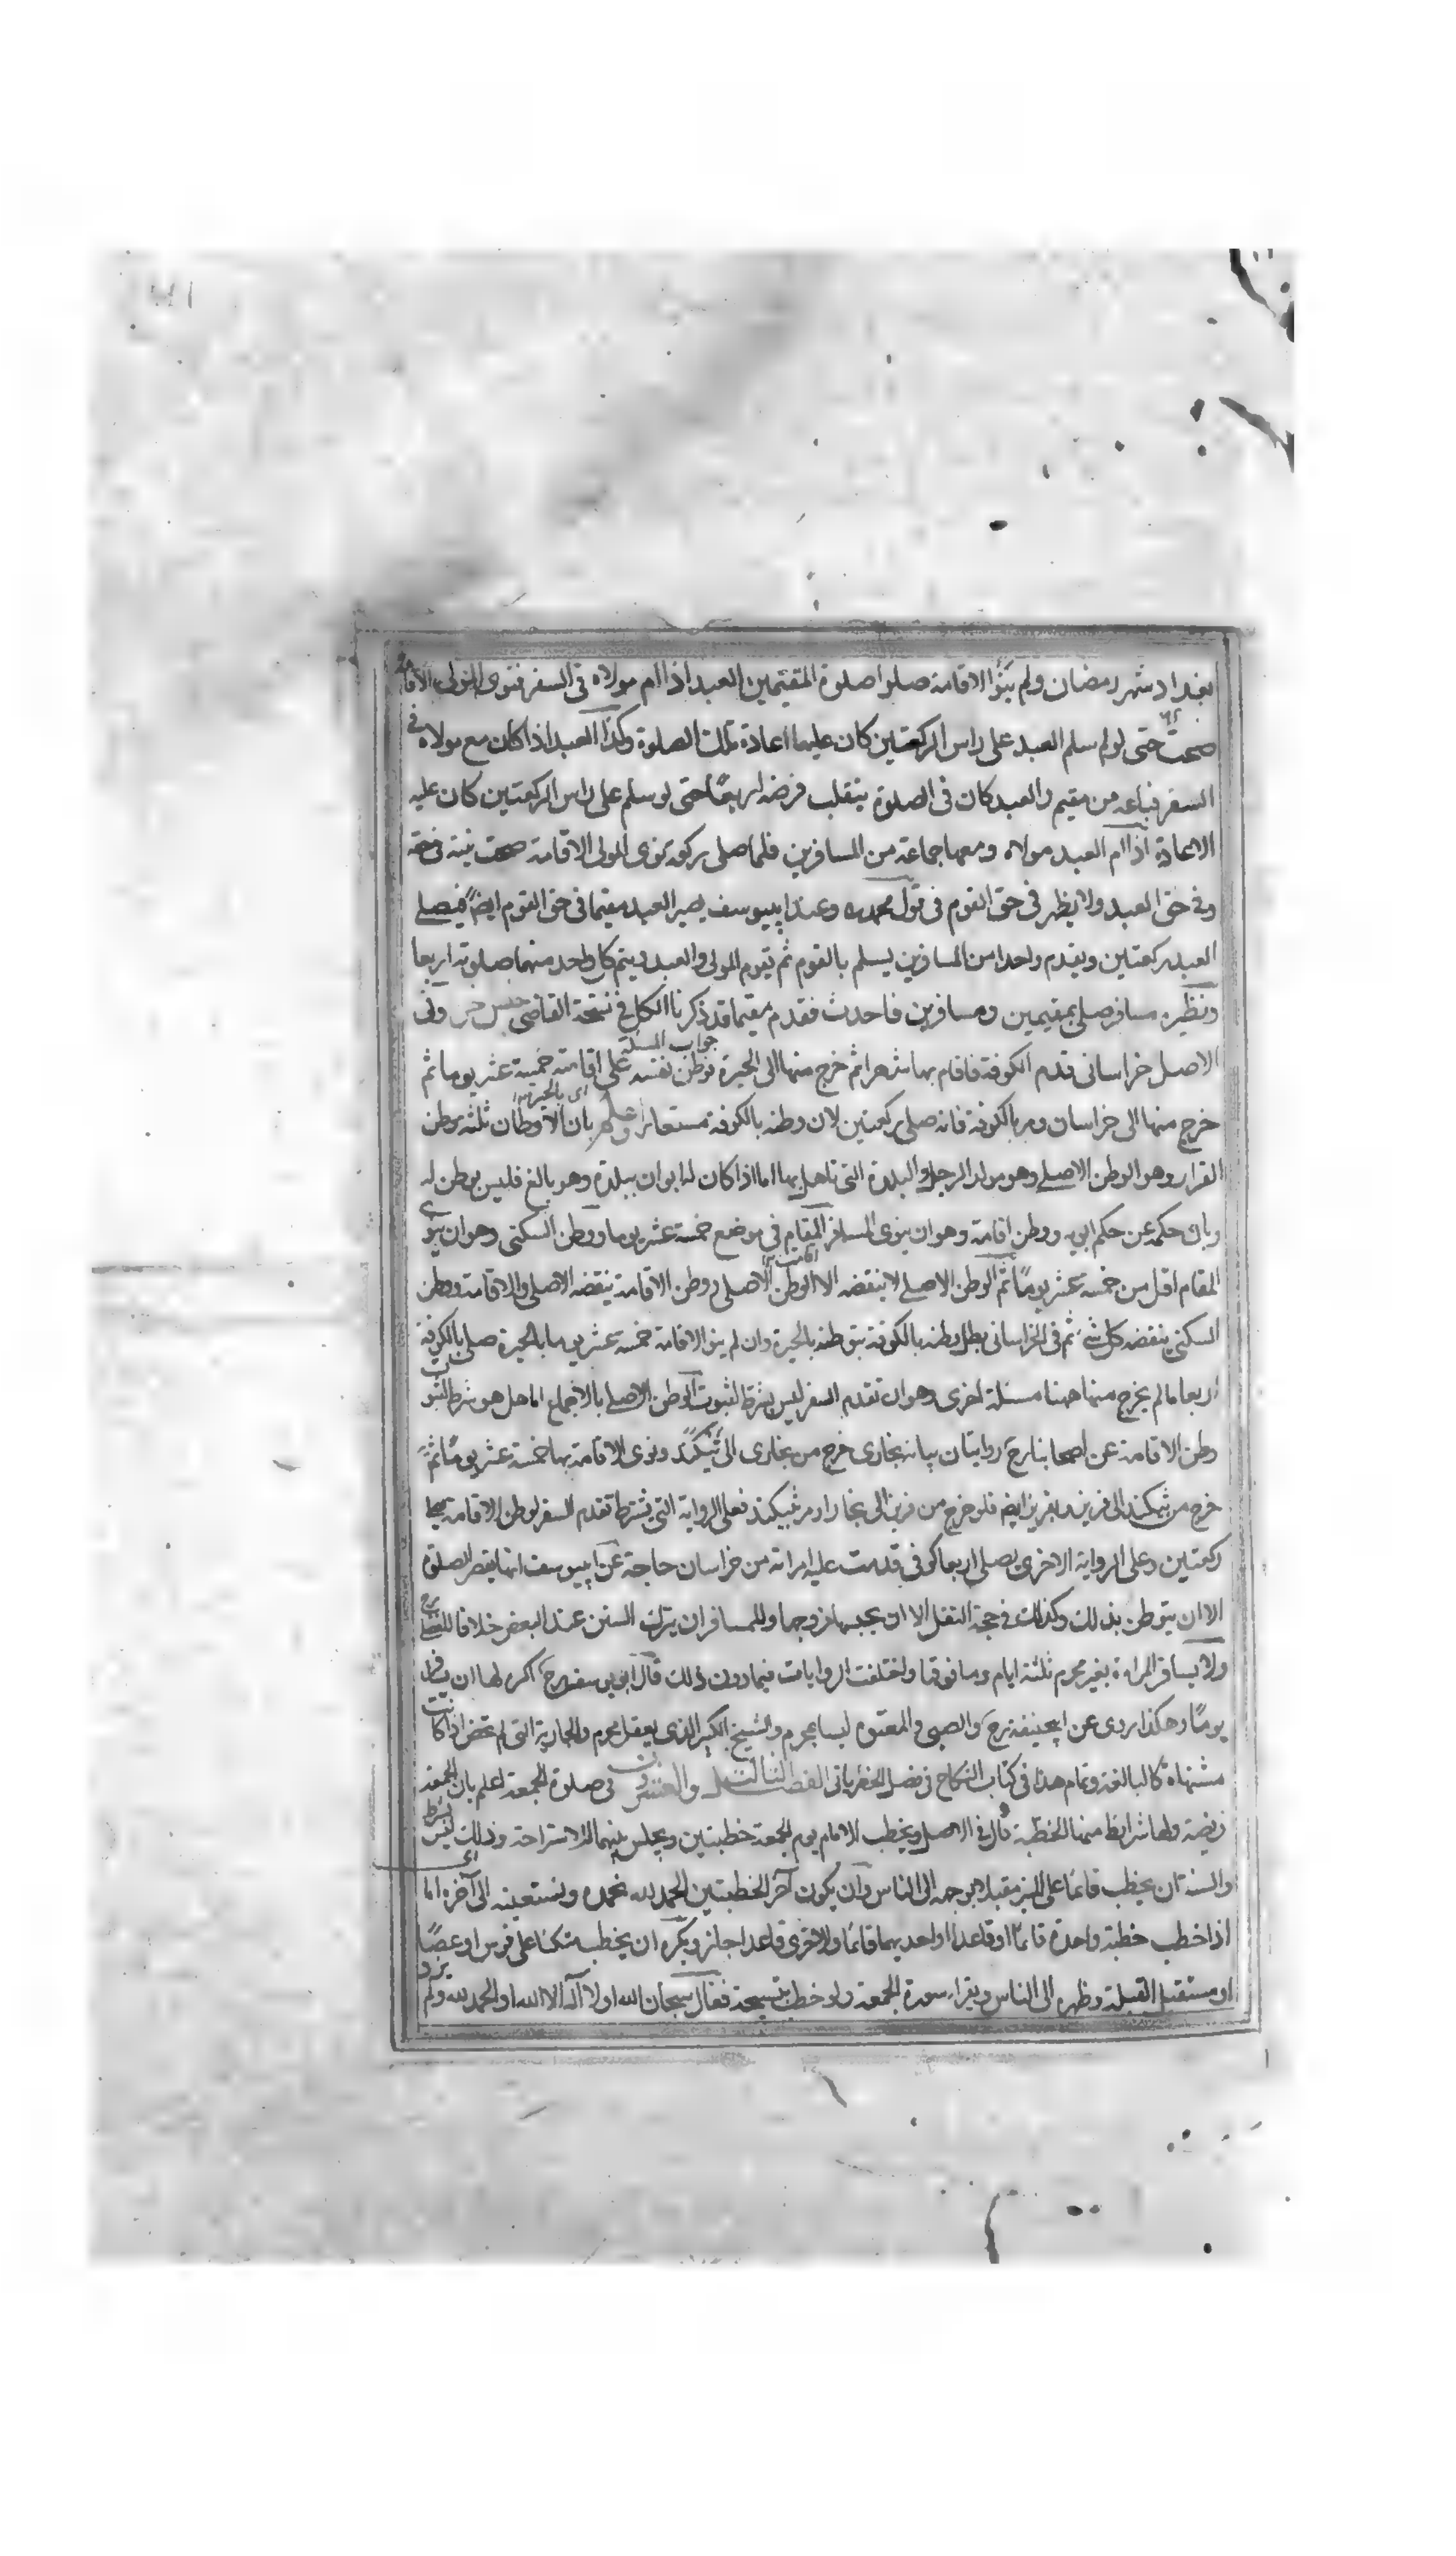 بغداد شهر رمضان ولم ينوا الاقامة صلوا صلوة المقيمين العبد اذا ام مولاه فى السفر فنوى المولى الاقامة
صحت حتى لو لم سلم العبد على راس الركعتين كان عليهما اعادة تلك الصلوة وكذا العبد اذا كان مع مولاه فى
السفر فباعه من مقيم والعبد كان فى الصلوة ينقلب فرضه اربعًا حتى لو سلم على راس الركعتين كان عليه
الاعادة اذا ام العبد مولاه ومعهما جماعة من المسافرين فلما صلى ركعة نوى المولى الاقامة صحت نيته فى حقه
وفى حق العبد ولا يظهر فى حق القوم فى قول محمد ره وعند ابيوسف يصير العبد مقيما فى حق القوم ايضً فيصلے
العبد ركعتين ويقدم واحدا من المسافرين ليسلم بالقوم ثم يقوم المولى والعبد ويتم كل واحد منهما صلوته اربعا
ونظيره مسافر صلى بمقيمين ومسافرين فاحدث فقدم مقيما قد ذكرنا الكل فى نسخة القاضى جنس خر وفى
جواب المسئلة
الاصل خراسانى قدم الكوفة فاقام بها شهرا ثم خرج منها الى الحيرة فوطن نفسه على اقامة خمسة عشر يوما ثم
اى بالحيرة
خرج منها الى خراسان ومر بالكوفة فانه صلى ركعتين لان وطنه بالكوفة مستعار واعلم بان الاوطان ثلثه وطن
القرار وهو الوطن الاصلے وهو مولد الرجل والبلدة التى تاهل بها اما اذا كان له ابوان ببلدة وهو بالغ فليس بوطن له
وبان حكمه عن حكم ابيه ووطن اقامة وهو ان ينوى المسافر المقام فى موضع خمسة عشر يوما ووطن السكنى وهو ان ينوى
المقام اقل من خمسة عشر يومًا ثم الوطن الاصلے لا ينقضه الا الوطن الاصلى ووطن الاقامة ينقضه الاصلى والاقامة ووطن
السكنى ينقضه كل شئ ثم فى الخراسانى بطل وطنه بالكوفة بتوطنه بالحيرة وان لم ينو الاقامة خمسة عشر يوما بالحيرة صلى بالكوفة
اربعا مالم يخرج منها ههنا مسئلة اخرى وهو ان تقدم السفر ليس بشرط لثبوت الوطن الاصلے بالاجماع اما هل هو شرط لثبوت
وطن الاقامة عن اصحابنا رح روايتان بيانه بخارى خرج من بخارى الى بيكند ونوى الاقامة بها خمسة عشر يومًا ثم
خرج من بيكند الى فربر فلو خرج من فربر الى بخارا ومر ببيكند فعلى الرواية التى يشترط تقدم السفر لوطن الاقامة
ركعتين وعلى الرواية الاخرى يصلى اربعا كوفى قدمت عليه امراته من خراسان حاجة عن ابيوسف انها يقصر الصلوة
الا ان يتوطن بذلك وكذلك فى حجة النفل الا ان يحبسها زوجها وللمسافر ان يترك السنن عند البعض خلافا للبعض
ولا يسافر المراءة بغير محرم ثلثة ايام وما فوقها واختلفت الروايات فيما دون ذلك قال ابويوسف رح اكره لها ان
يومًا وهكذا روى عن ابيحنيفة رح والصبى والمعتوه ليسا بمحرم والشيخ الكبير الذى يعقل محرم والجارية التى لم تحض اذا كانت
مشتهاة كالبالغة وتمام هذا فى كتاب النكاح فى فصل الحضر ياتى الفصل الثالث والعشرون فى صلوة الجمعة اعلم بان الجمعة
فريضة ولها شرايط منها الخطبة قال فى الاصل ويخطب الامام يوم الجمعة خطبتين ويجلس بينهما للاستراحة وذلك ليس بشرط
والسنة ان يخطب قائمًا على المنبر مقبلا بوجهه الى الناس وان يكون آخر الخطبتين الحمد لله نحمده ونستعينه الى آخره اما
اذا خطب خطبة واحدة قائما او قاعدا او احديهما قائما والاخرى قاعدا جاز ويكره ان يخطب متكئا على قوس او عصًا
او مستقبل القبلة وظهره الى الناس ويقراء سورة الجمعة ولو خطب بتسبيحة فقال سبحان الله او لا آله الا الله او الحمد لله ولم يزد